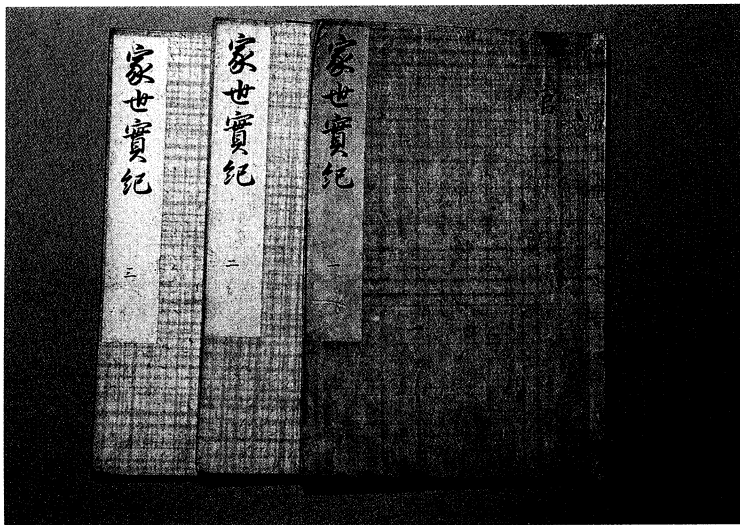 家世實紀
一
家世實紀
二
家世實紀
三